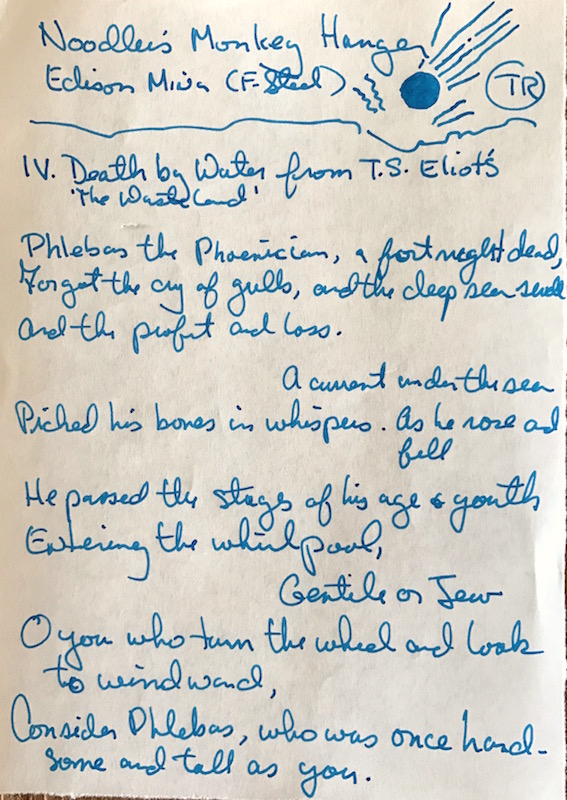 Noodler's Monkey Hanger
Edison Mina (F-Steel)
TR
IV. Death by Water from T.S. Eliot's
'The Waste Land'
Phlebas the Phoenician, a fortnight dead,
Forgot the cry of gulls, and the deep sea swell
And the profit and loss.
A current under the sea
Picked his bones in whispers. As he rose and
fell
He passed the stages of his age & youth
Entering the whirlpool,
Gentile or Jew
O you who turn the wheel and look
to windward,
Consider Phlebas, who was once hand-
some and tall as you.